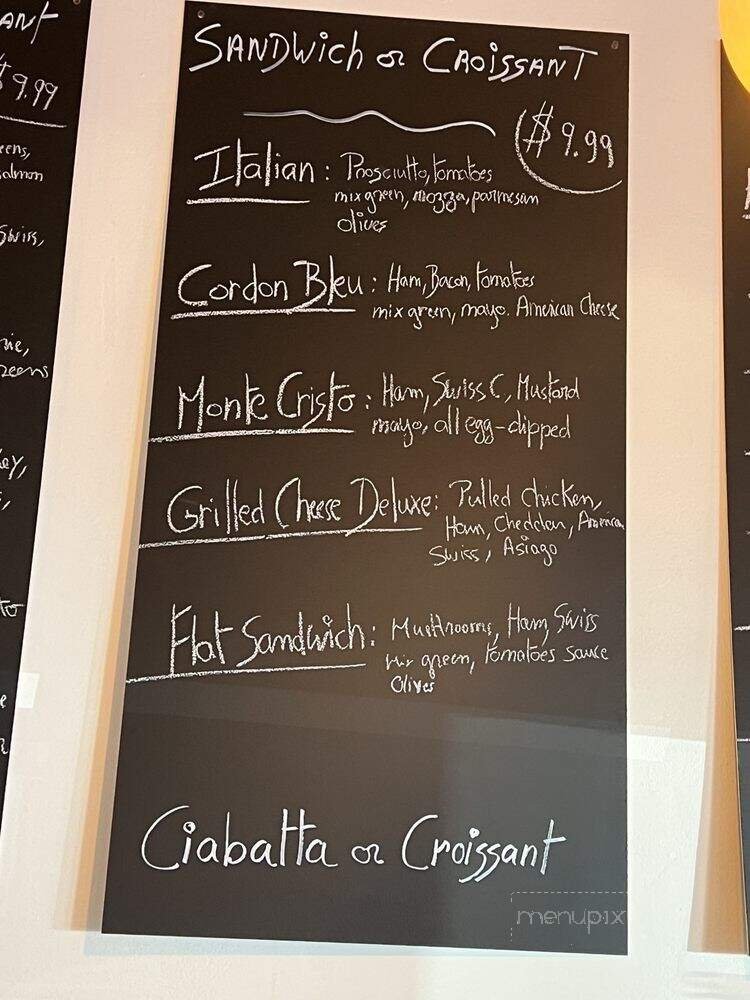 ANT
$9.99
eens,
almon
Swiss,
ie,
reens
ey,
to
e
SANDWich or CROISSANT
$9.99
Italian: Prosciutto, tomatoes
mix green, mozza, parmesan
olives
Cordon Bleu: Ham, Bacon, tomatoes
mix green, mayo. American Cheese
Monte Cristo: Ham, Swiss C, Mustard
mayo, all egg-dipped
Grilled Cheese Deluxe: Pulled chicken,
Ham, Cheddar, American
Swiss, Asiago
Flat Sandwich: Mushrooms, Ham, Swiss
mix green, tomatoes sauce
Olives
Ciabatta or Croissant
menupix